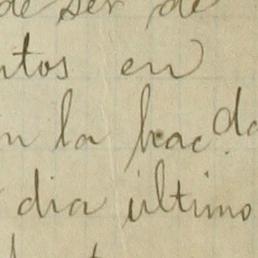 de ser de
ntos en
n la hac.da
dia último